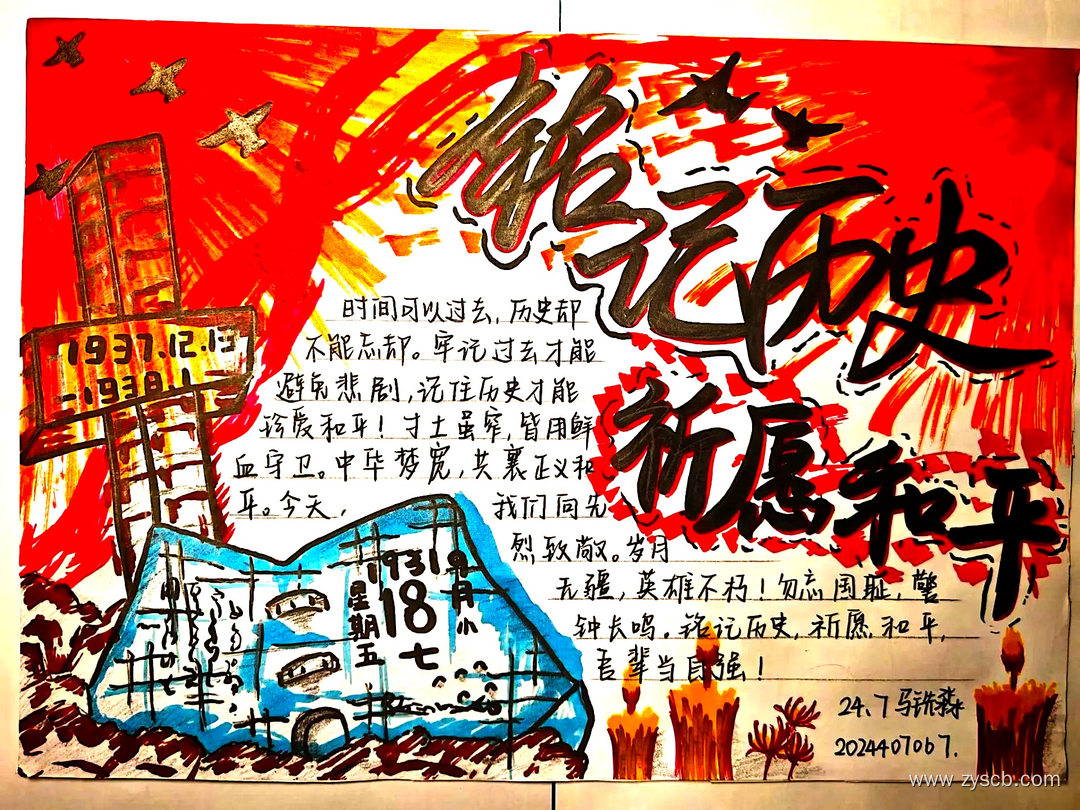 铭记历史
祈愿和平
1937.12.13
-1938.1
时间可以过去,历史却
不能忘却。牢记过去才能
避免悲剧,记住历史才能
珍爱和平!寸土虽窄,皆用鲜
血守卫。中华梦宽,共襄正义和
平。今天, 我们向先
烈致敬。岁月
无疆,英雄不朽!勿忘国耻,警
钟长鸣。铭记历史,祈愿和平,
吾辈当自强!
1931 9月小
星期五 18
七
24.7 马
2024407067.
www.zyscb.com